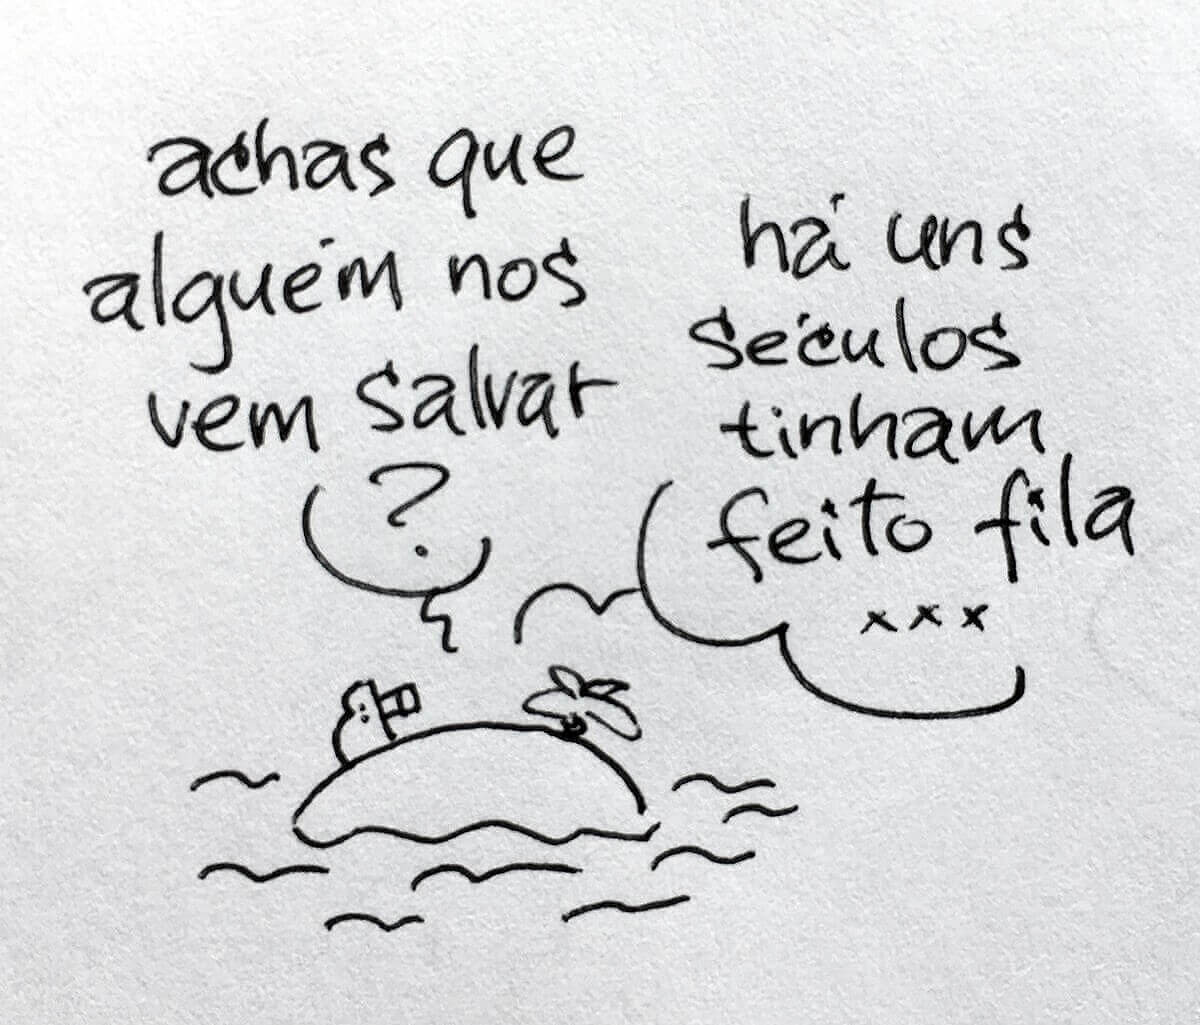 achas que
alguém nos
vem salvar
?
há uns
séculos
tinham
feito fila
xxx